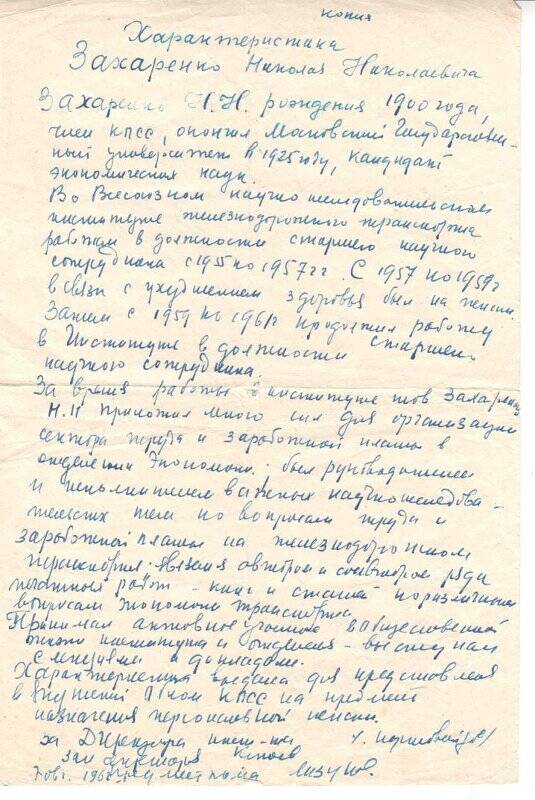 копия
Характеристика
Захаренко Николая Николаевича
Захаренко Н.Н. рождения 1900 года,
член КПСС, окончил Московский Государствен-
ный университет в 1925 году, кандидат
экономических наук.
Во Всесоюзном научно исследовательском
институте железнодорожного транспорта
работал в должности старшего научного
сотрудника с 1955 по 1957 гг. С 1957 по 1959 г
в связи с ухудшением здоровья был на пенсии.
Затем с 1959 по 1961 г продолжил работу
в Институте в должности старшего
научного сотрудника.
За время работы в институте тов Захаренко
Н.Н приложил много сил для организации
сектора труда и заработной платы в
отделении Экономики; был руководителем
и исполнителем важных научноисследова-
тельских тем по вопросам труда и
заработной платы на железнодорожном
транспорте. Является автором и соавтором ряда
печатных работ - книг и статей по различным
вопросам экономики транспорта.
Принимал активное участие в общественной
жизни института и отделения - выступал
с лекциями и докладами.
Характеристика выдана для представления
в РК КПСС на предмет
назначения персональной пенсии.
за Директора инст-та
зам директора